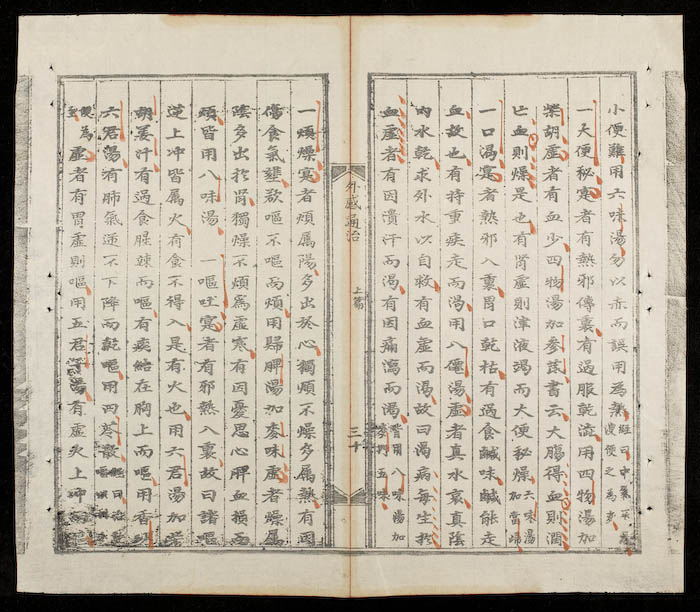 小便難用六味湯勿以赤而誤用爲熱經曰中氣不
溲便之爲變
一大便秘寔者有熱邪傳裏有過服乾濇用四物湯加
柴胡虛者有血少四物湯加參芪書云大腸得血則潤
亡血則燥是也有腎虛則津液竭而大便秘燥六味湯
加當歸
一口渴寔者熱邪入裏胃口乾枯有過食鹹味鹹能走
血故也有持重疾走而渴用八僊湯虛者真水衰真陰
內水乾求外水以自救有血虛而渴故曰渴病每生於
血虛者有因潰汗而渴有因痛瀉而渴皆用八味湯加
麥門五味
外感通治
上篇
三十
一煩燥寔者煩屬陽多出於心獨煩不燥多屬熱有因
傷食氣壅欲嘔不嘔而煩用歸脾湯加麥味虛者燥屬
陰多出於腎獨燥不煩爲虛寒有因憂思心脾血損而
煩皆用八味湯 一嘔吐寔者有邪熱入裏故曰諸嘔
逆上冲皆屬火有食不得入是有火也用六君湯加
胡姜汁有過食腥辣而嘔有痰結在胸上而嘔用香
六君湯有肺氣逆不下降而乾嘔用四
便爲虛者有胃虛則嘔用五君湯有虛火上冲而